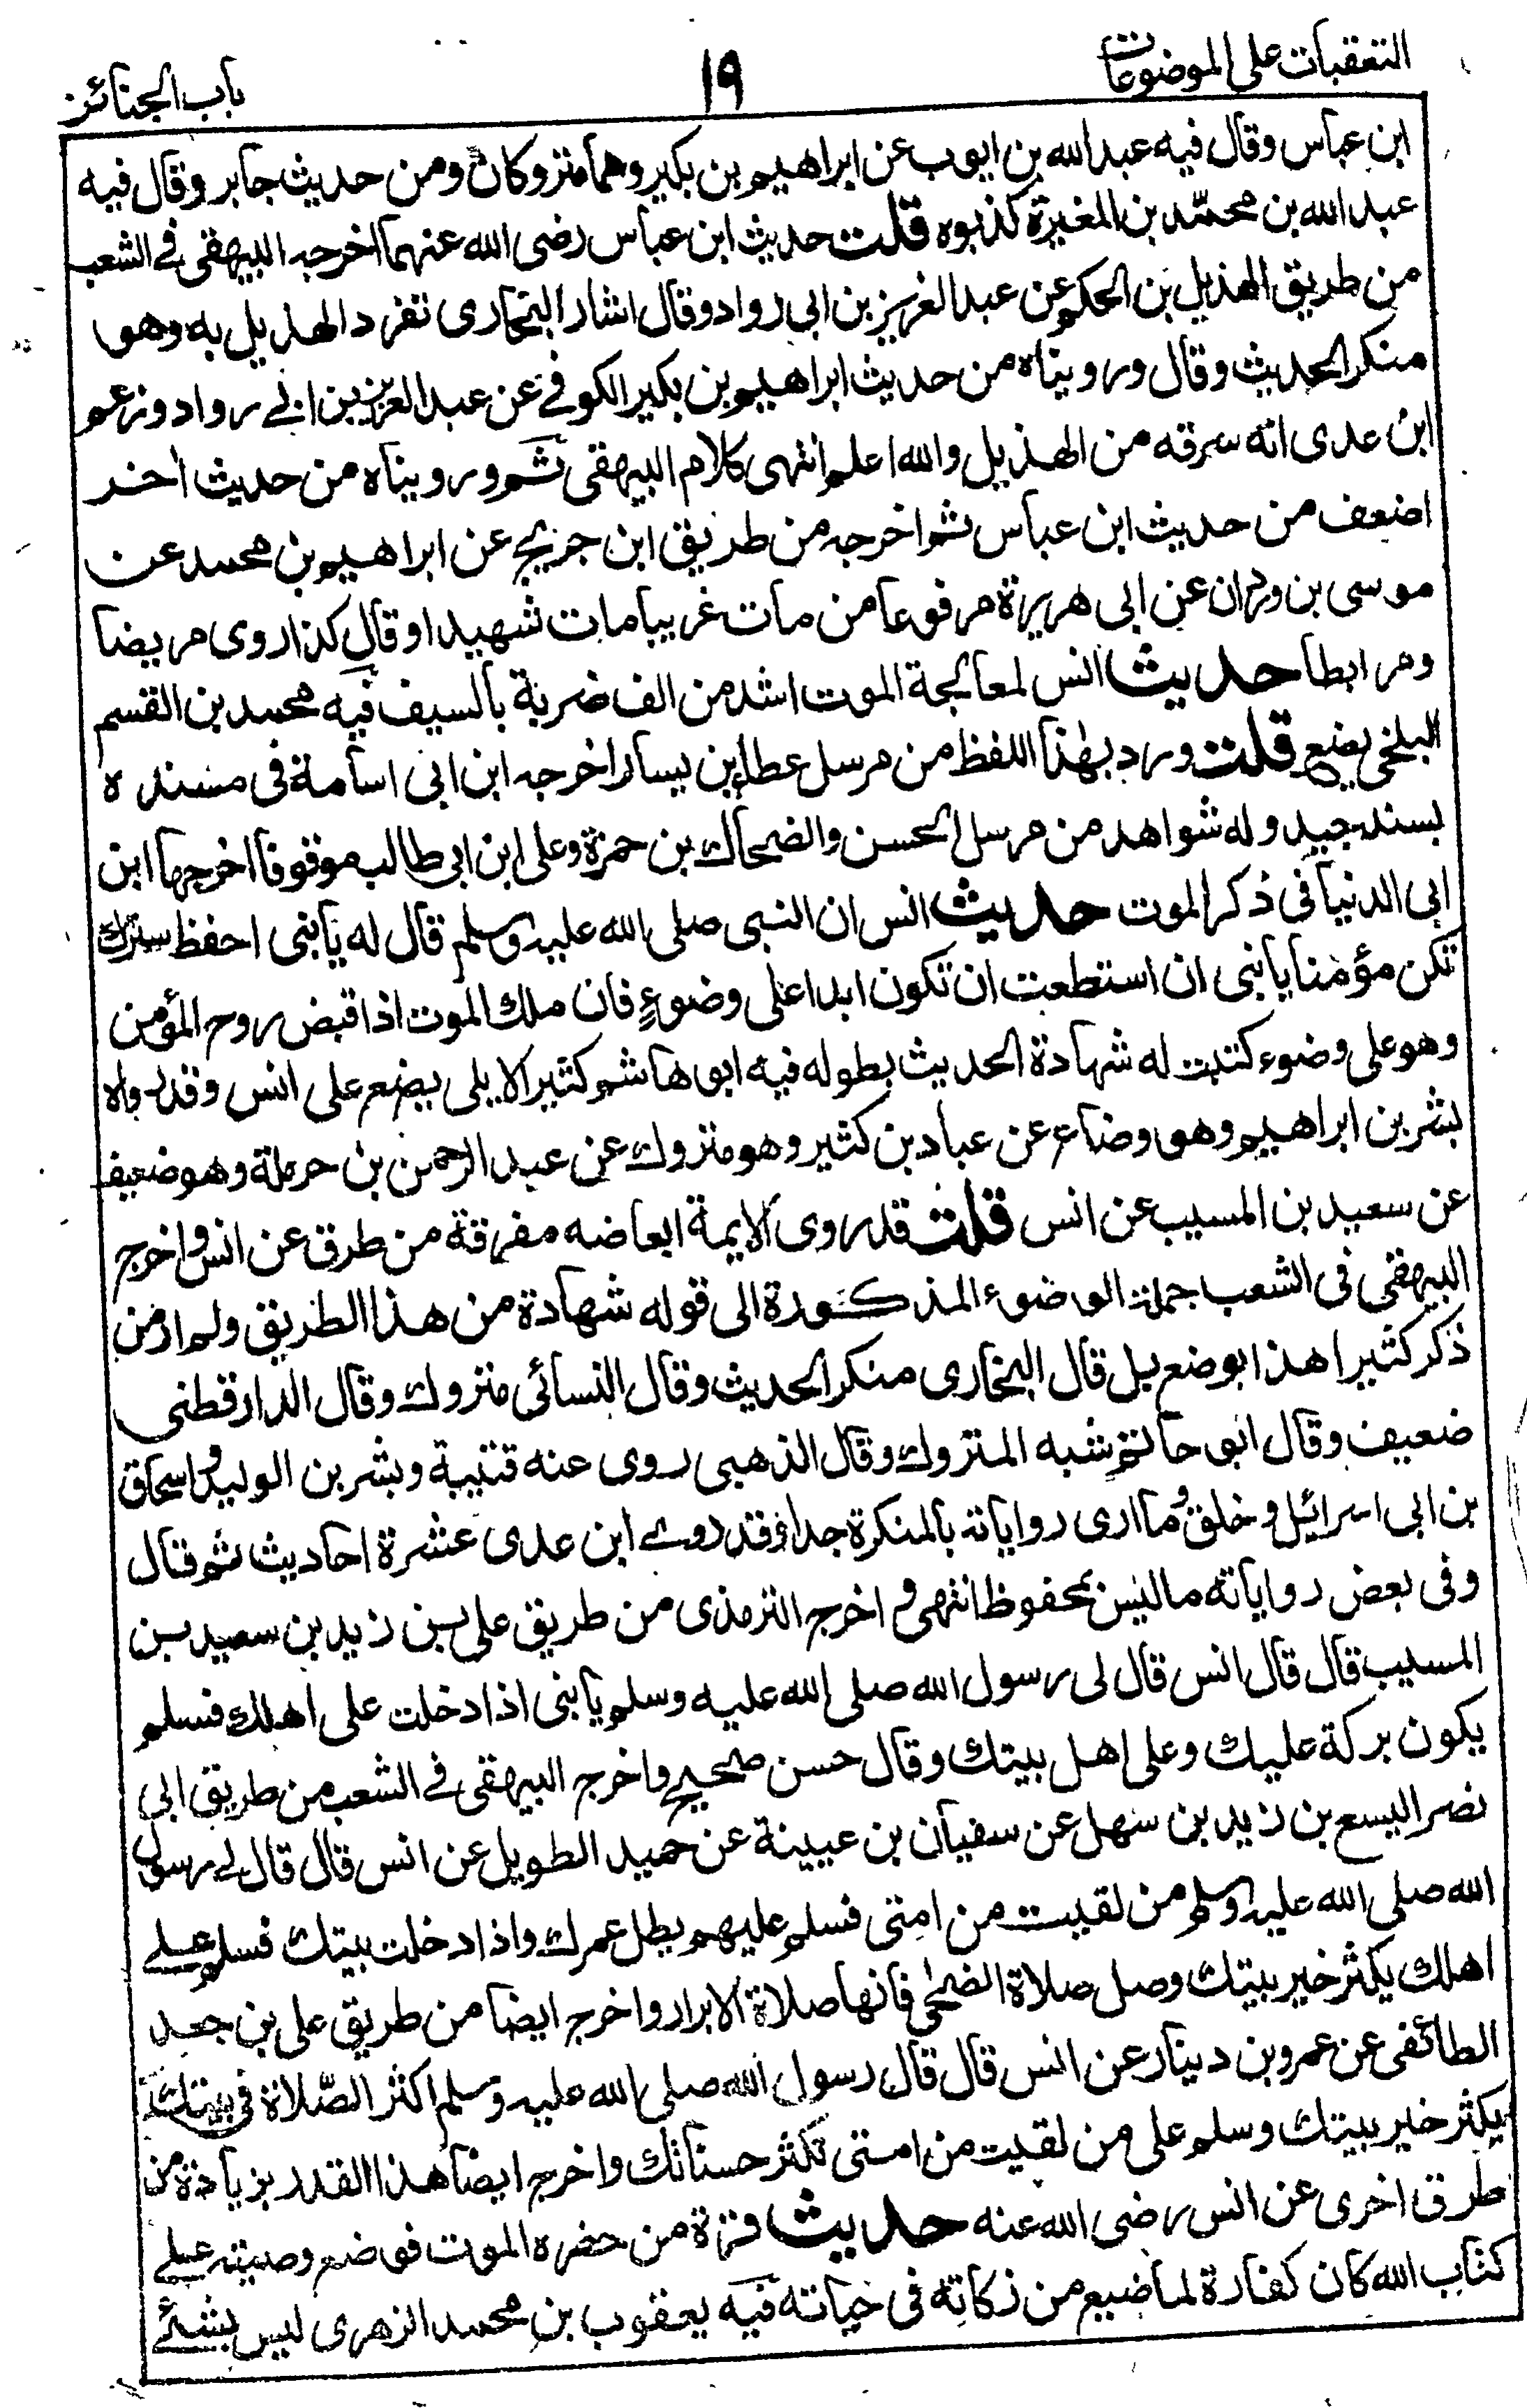 التعقبات على الموضوعات
١٩
باب الجنائز
ابن عباس وقال فيه عبد الله بن ايوب عن ابراهيم بن بكير وهما متروكان ومن حديث جابر وقال فيه
عبد الله بن محمد بن المغيرة كذبوه قلت حديث ابن عباس رضى الله عنهما اخرجه البيهقى فے الشعب
من طريق الهذيل بن الحكم عن عبد العزيز بن ابى رواد وقال اشار البخارى تفرد الهذيل به وهو
منكر الحديث وقال ورويناه من حديث ابراهيم بن بكير الكوفے عن عبد العزيز بن ابے رواد وزعم
ابن عدى انه سرقه من الهذيل والله اعلم انتهى كلام البيهقى ثم ورويناه من حديث اخر
اضعف من حديث ابن عباس ثم اخرجه من طريق ابن جريج عن ابراهيم بن محمد عن
موسى بن وردان عن ابى هريرة مرفوعا من مات غريبا مات شهيدا وقال كذا روى مريضا
ومرابطا حديث انس لمعالجة الموت اشد من الف ضربة بالسيف فيه محمد بن القسم
البلخى يضع قلت ورد بهذا اللفظ من مرسل عطاء بن يسار اخرجه ابن ابى اسامة فى مسنده
بسند جيد وله شواهد من مرسل الحسن والضحاك بن حمزة وعلى ابن ابى طالب موقوفا اخرجها ابن
ابى الدنيا فى ذكر الموت حديث انس ان النبى صلى الله عليه وسلم قال له يا بنى احفظ سترك
تكن مؤمنا يا بنى ان استطعت ان تكون ابدا على وضوء فان ملك الموت اذا قبض روح المؤمن
وهو على وضوء كتبت له شهادة الحديث بطوله فيه ابو هاشم كثير الايلى يضع على انس وقد رواه
بشر بن ابراهيم وهو وضاع عن عباد بن كثير وهو متروك عن عبد الرحمن بن حرملة وهو ضعيف
عن سعيد بن المسيب عن انس قلت قد روى الايمة ابعاضه مفرقة من طرق عن انس واخرج
البيهقى فى الشعب جملة الوضوء المذكورة الى قوله شهادة من هذا الطريق ولم ار من
ذكر كثيرا هذا بوضع بل قال البخارى منكر الحديث وقال النسائى متروك وقال الدارقطنى
ضعيف وقال ابو حاتم شبه المتروك وقال الذهبى روى عنه قتيبة وبشر بن الوليد واسحاق
بن ابى اسرائيل وخلق وما ارى رواياته بالمنكرة جدا وقد روے ابن عدى عشرة احاديث ثم قال
وفى بعض رواياته ما ليس بمحفوظ انتهى و اخرج الترمذى من طريق على بن زيد بن سعيد بن
المسيب قال قال انس قال لى رسول الله صلى الله عليه وسلم يا بنى اذا دخلت على اهلك فسلم
يكون بركة عليك وعلى اهل بيتك وقال حسن صحيح واخرج البيهقى فے الشعب من طريق ابى
نصر اليسع بن زيد بن سهل عن سفيان بن عيينة عن حميد الطويل عن انس قال قال لے رسول
الله صلى الله عليه وسلم من لقيت من امتى فسلم عليهم يطل عمرك واذا دخلت بيتك فسلم علے
اهلك يكثر خير بيتك وصل صلاة الضحى فانها صلاة الابرار واخرج ايضا من طريق على بن جعد
الطائفى عن عمرو بن دينار عن انس قال قال رسول الله صلى الله عليه وسلم اكثر الصلاة فى بيتك
يكثر خير بيتك وسلم على من لقيت من امتى تكثر حسناتك واخرج ايضا هذا القدر بزيادة من
طرق اخرى عن انس رضى الله عنه حديث قرة من حضره الموت فوضع وصيته علے
كتاب الله كان كفارة لما ضيع من زكاته فى حياته فيه يعقوب بن محمد الزهرى ليس بشئ